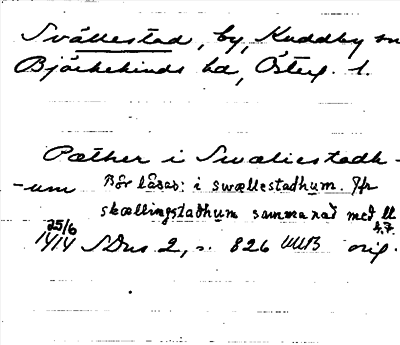 Svällestad, by, Kuddby sn
Björkekinds hd, Österg. l.
Pæther i Swæliestadh-
-um Bör läsas: i swællestadhum. Jfr
skællingstadhum samma rad med ll
25/6
1414 SDns 2, s. 826 orig.